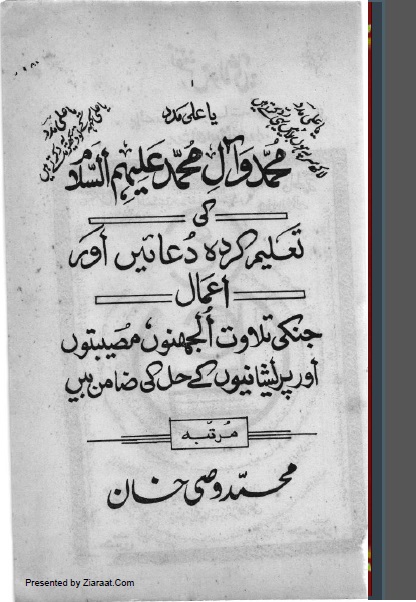 یا علی مدد
یا علی مدد
یا علی مدد
محمدؐ وَآلِ محمدؐ عَلیہِم السَّلام
کی
تعلیم کردہ دُعائیں اور
اعمال
جنکی تلاوت اُلجھنوں، مُصیبتوں
اور پریشانیوں کے حل کی ضامن ہیں
مُرتّبہ
محمدّ وصی خان
Presented by Ziaraat.Com